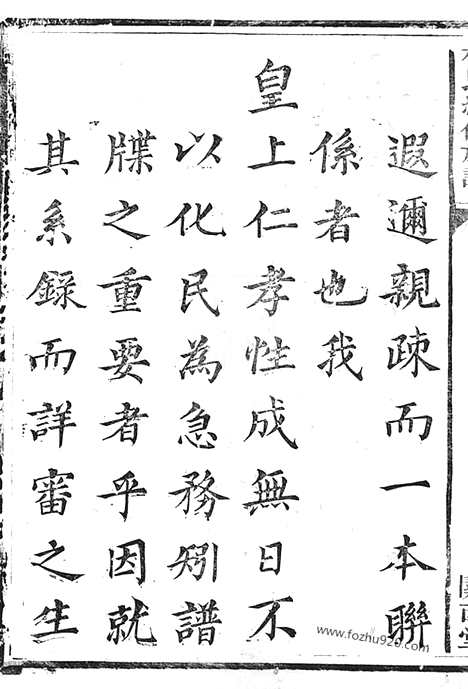 遐邇親疎而一本聯
係者也我
皇上仁孝性成無日不
以化民為急務矧譜
牒之重要者乎因就
其系錄而詳審之生
www.fozhu920.com